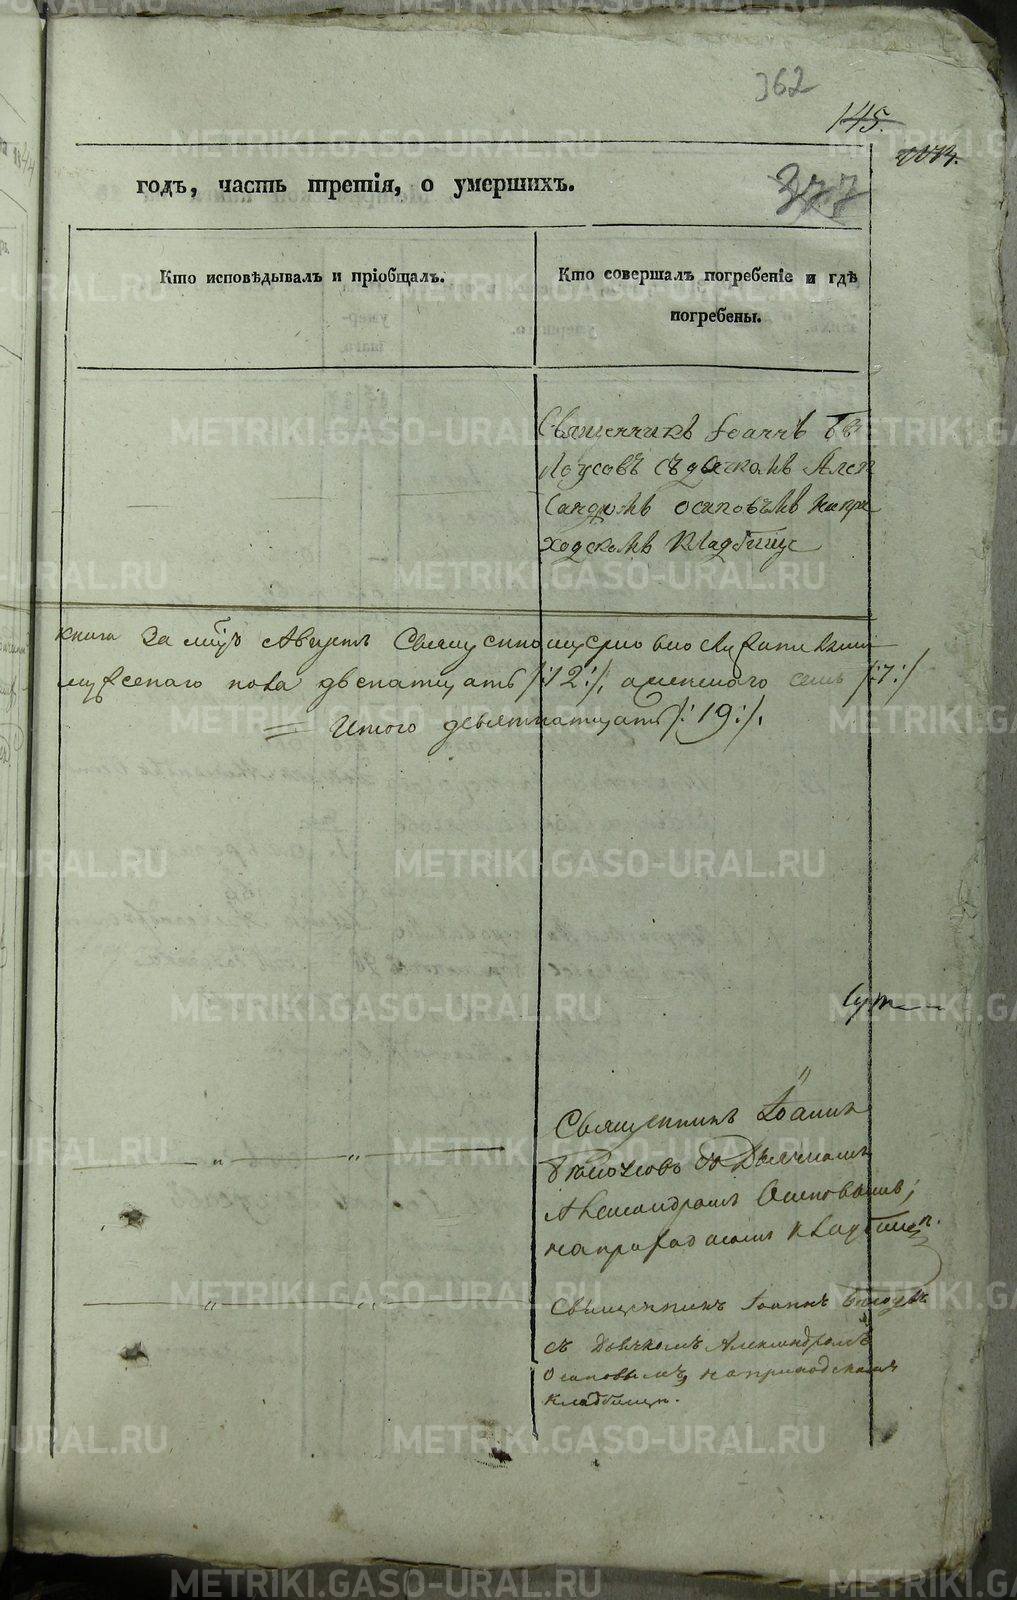 362
145.
377
годъ, часть третія, о умершихъ.
Кто исповѣдывалъ и пріобщалъ.
Кто совершалъ погребеніе и гдѣ
погребены.
Священникъ Іоаннъ Бѣ
лоусовъ съ дьячкомъ Алек
сандромъ Осиповымъ на при
ходскомъ кладбище
книга За мцъ Августъ
мужескаго пола двенатцать /:12:/, а женскаго семь /:7:/
Итого девятнатцать /:19:/.
Священникъ Іоаннъ
съ Дьячкомъ
Александромъ Осиповымъ,
на приходскомъ кладбищѣ.
Священникъ Іоаннъ Белоусовъ
съ Дьячкомъ Александромъ
Осиповымъ, на приходскомъ
кладбищѣ.
METRIKI.GASO-URAL.RU